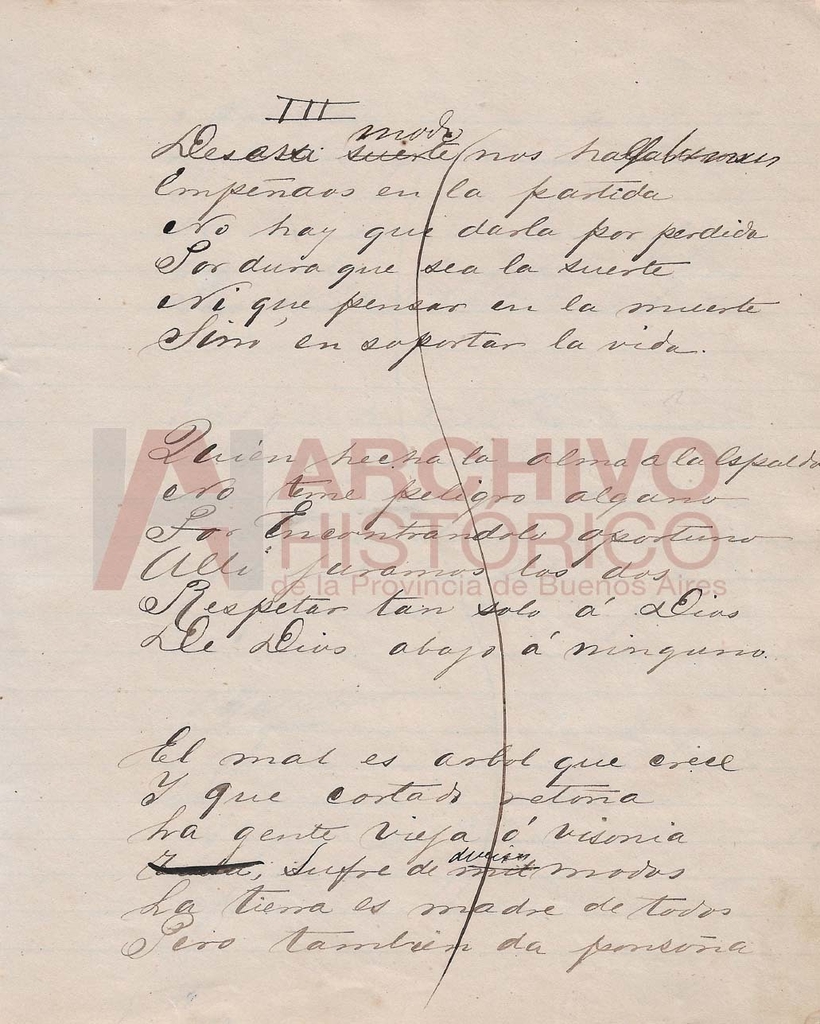 III
modo
De esa suerte nos hallabamos
Empeñaos en la partida
No hay que darla por perdida
Por dura que sea la suerte
Ni que pensar en la muerte
Sinó en soportar la vida.
Quien hecha la alma a la Espalda
No teme peligro alguno
Por Encontrandolo oportuno
Alli juramos los dos
Respetar tan solo á Dios
De Dios abajo á ninguno.
El mal es arbol que crece
Y que cortado retoña
La gente vieja ó visonia
Sufre de mil modos
La tierra es madre de todos
Pero tambien da ponsoña
ARCHIVO
HISTÓRICO
de la Provincia de Buenos Aires